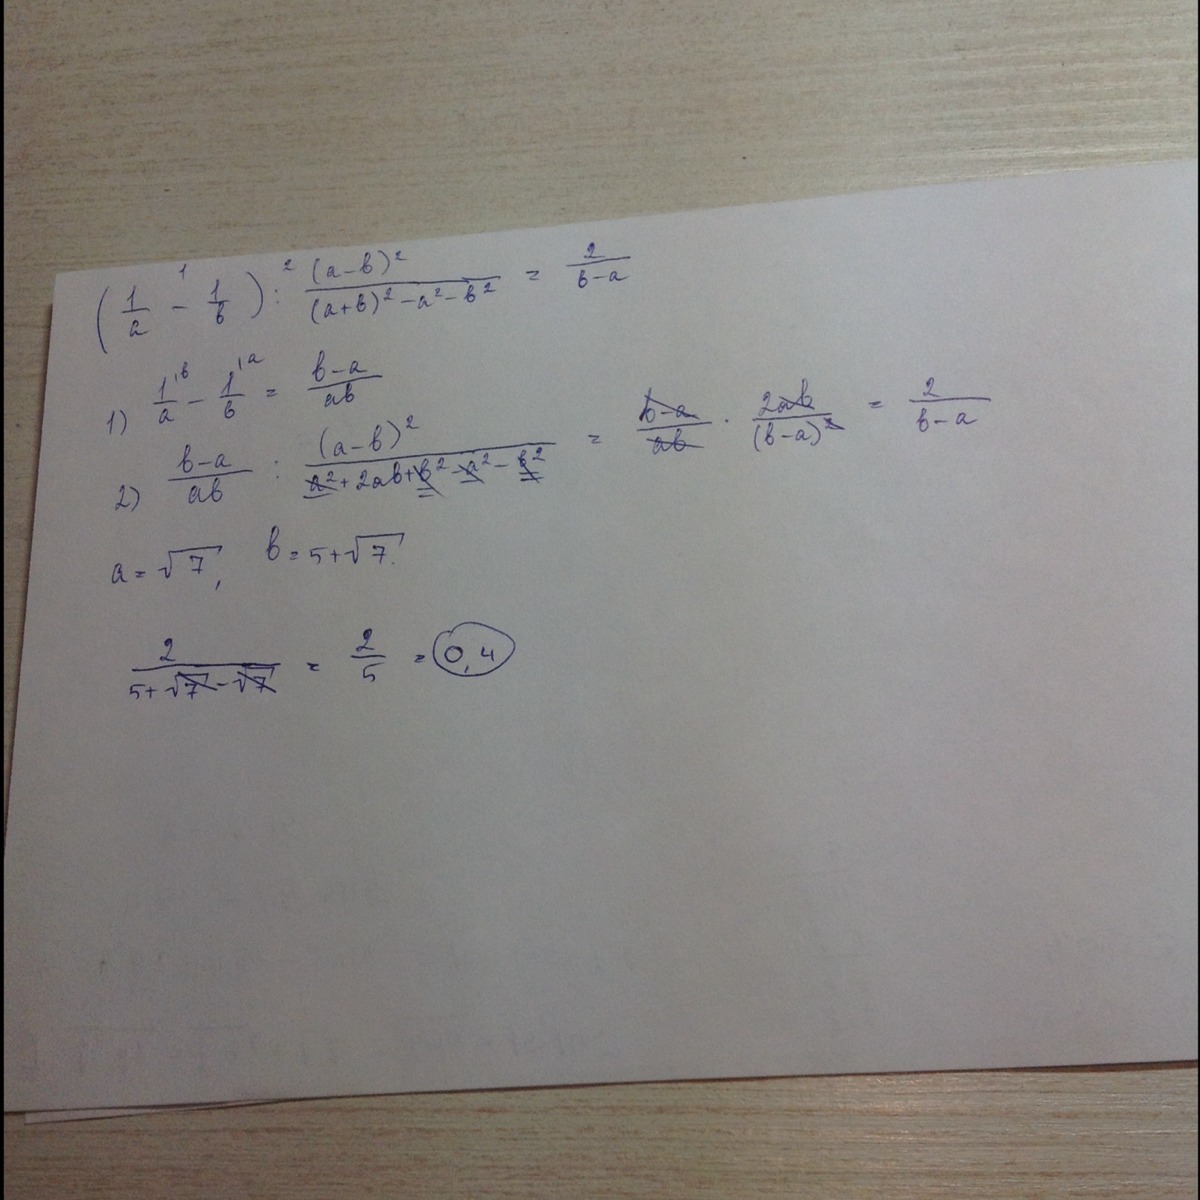 (1/a - 1/b) : (a-b)²/((a+b)² - a² - b²) = 2/(b-a)
1) 1/a - 1/b = (b-a)/ab
2) (b-a)/ab : (a-b)²/(a² + 2ab + b² - a² - b²) = (b-a)/ab · 2ab/(b-a)² = 2/(b-a)
a = √7, b = 5+√7.
2/(5+√7-√7) = 2/5 = 0,4